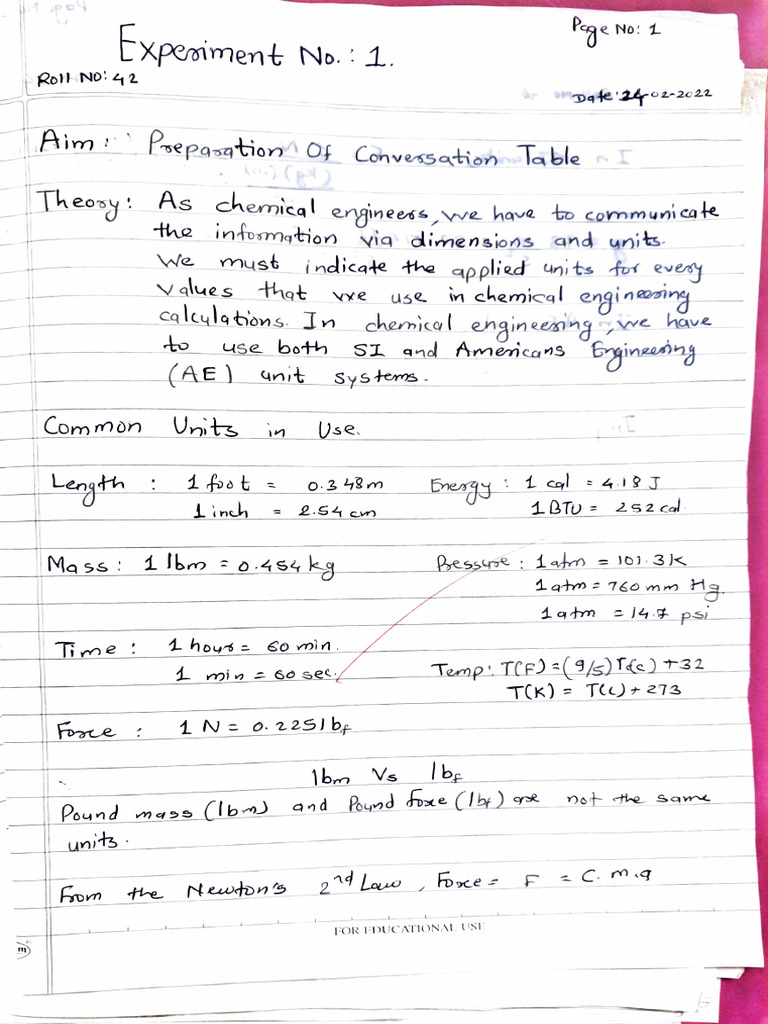 Page No: 1
Experiment No.: 1.
Roll No: 42
Date: 24-02-2022
Aim: Preparation Of Conversation Table
Theory: As chemical engineers, we have to communicate
the information via dimensions and units.
We must indicate the applied units for every
values that we use in chemical engineering
calculations. In chemical engineering, we have
to use both SI and Americans Engineering
(AE) unit systems.
Common Units in Use.
Length : 1 foot = 0.348m Energy : 1 cal = 4.18 J
1 inch = 2.54 cm 1 BTU = 252 cal.
Mass : 1 lbm = 0.454 kg Pressure : 1 atm = 101.3K
1 atm = 760 mm Hg.
1 atm = 14.7 psi
Time : 1 hours = 60 min.
1 min = 60 sec. Temp: T(F) = (9/5)T(c) + 32
T(K) = T(c) + 273
Force : 1 N = 0.225 lbf
lbm Vs lbf
Pound mass (lbm) and Pound force (lbf) are not the same
units.
From the Newton's 2nd Law, Force = F = C.m.g
FOR EDUCATIONAL USE
m